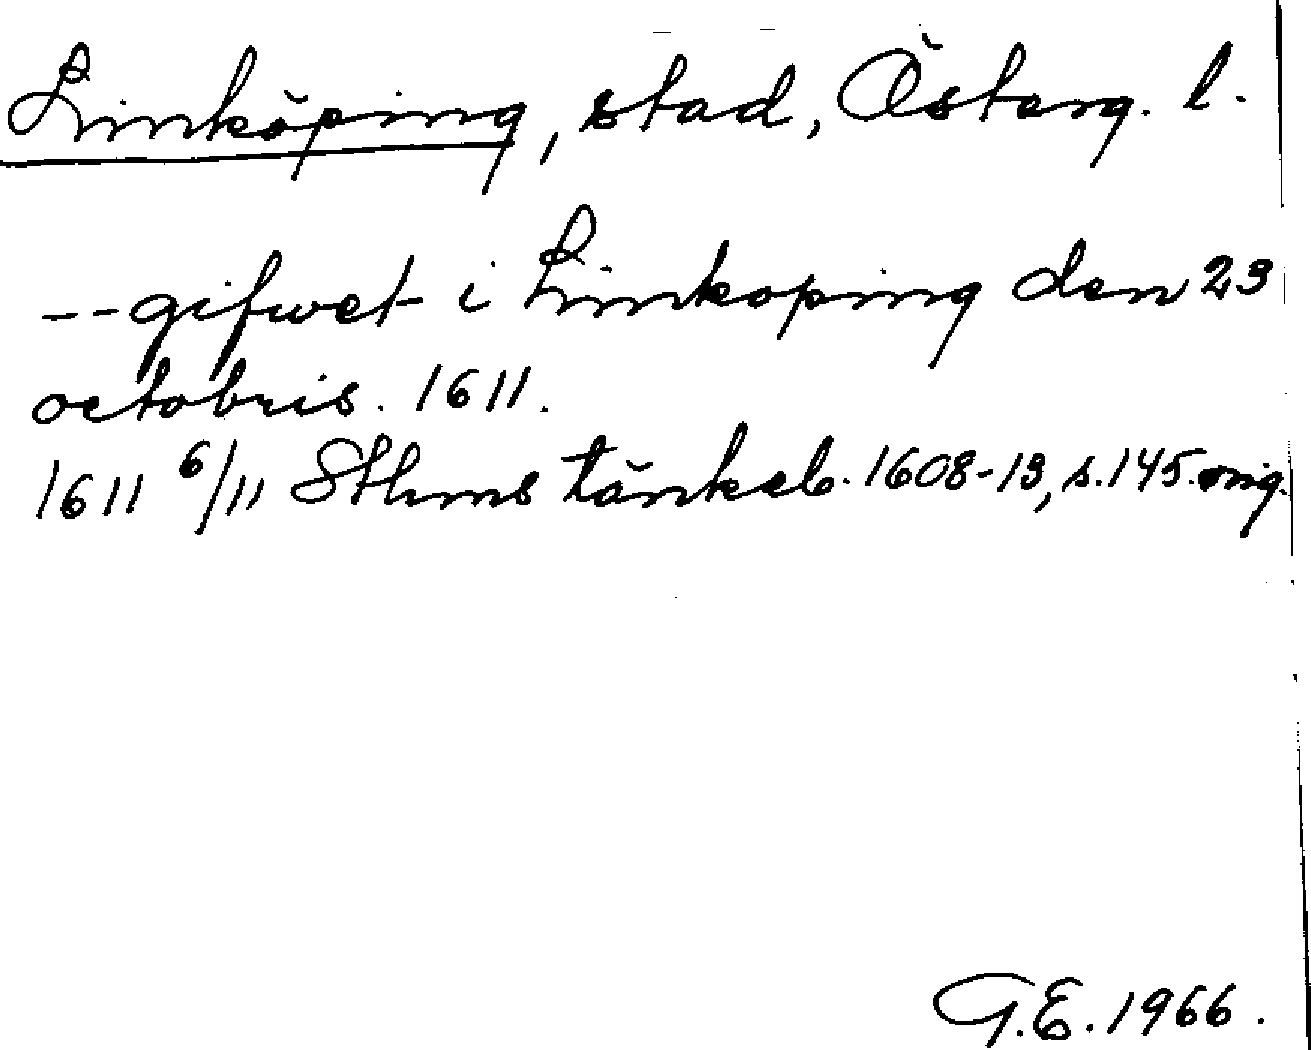 Linköping, stad, Österg. l.
-- gifwet i Linnkoping den 23
octobris. 1611.
1611 6/11 Sthms tänkeb. 1608-13, s. 145. orig.
G.E. 1966.